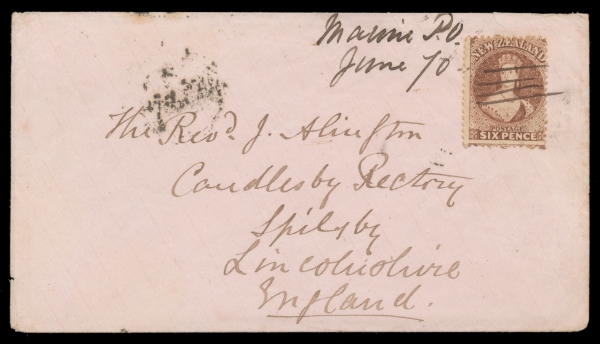 Marine P.O.
June 70
NEW ZEALAND
POSTAGE
SIX PENCE
The Revd. J. Alington
Candlesby Rectory
Spilsby
Lincolnshire
England.